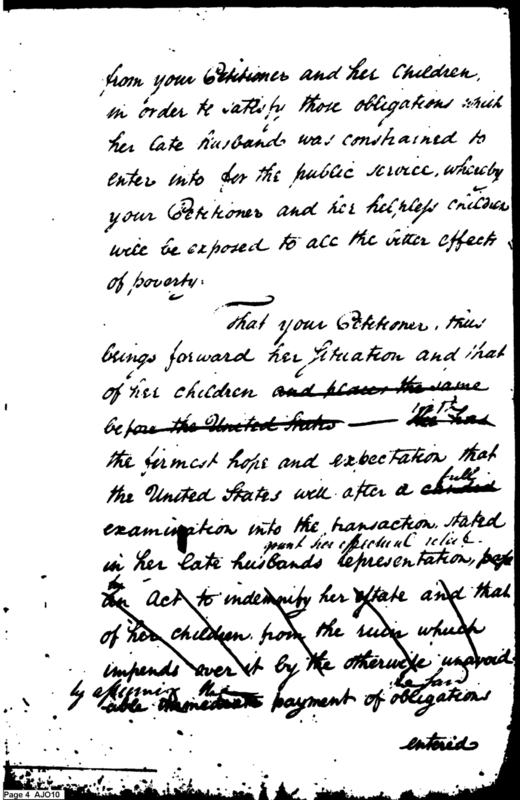 from your Petitioner and her Children,
in order to satisfy those obligations which
her late husband was constrained to
enter into for the public service, whereby
your Petitioner and her helpless children
will be exposed to all the bitter effects
of poverty.
That your Petitioner, thus
brings forward her Situation and that
of her children and places the same
before the United States — with
the firmest hope and expectation that
fully
the United States will after a candid
examination into the transaction stated
grant her effectual relief.
in her late husbands representation, pass
an Act to indemnify her estate and that
of her children, from the ruin which
impends over it by the otherwise unavoid
by assuming the
the said
able immediate payment of obligations
entered
Page 4 AJO10